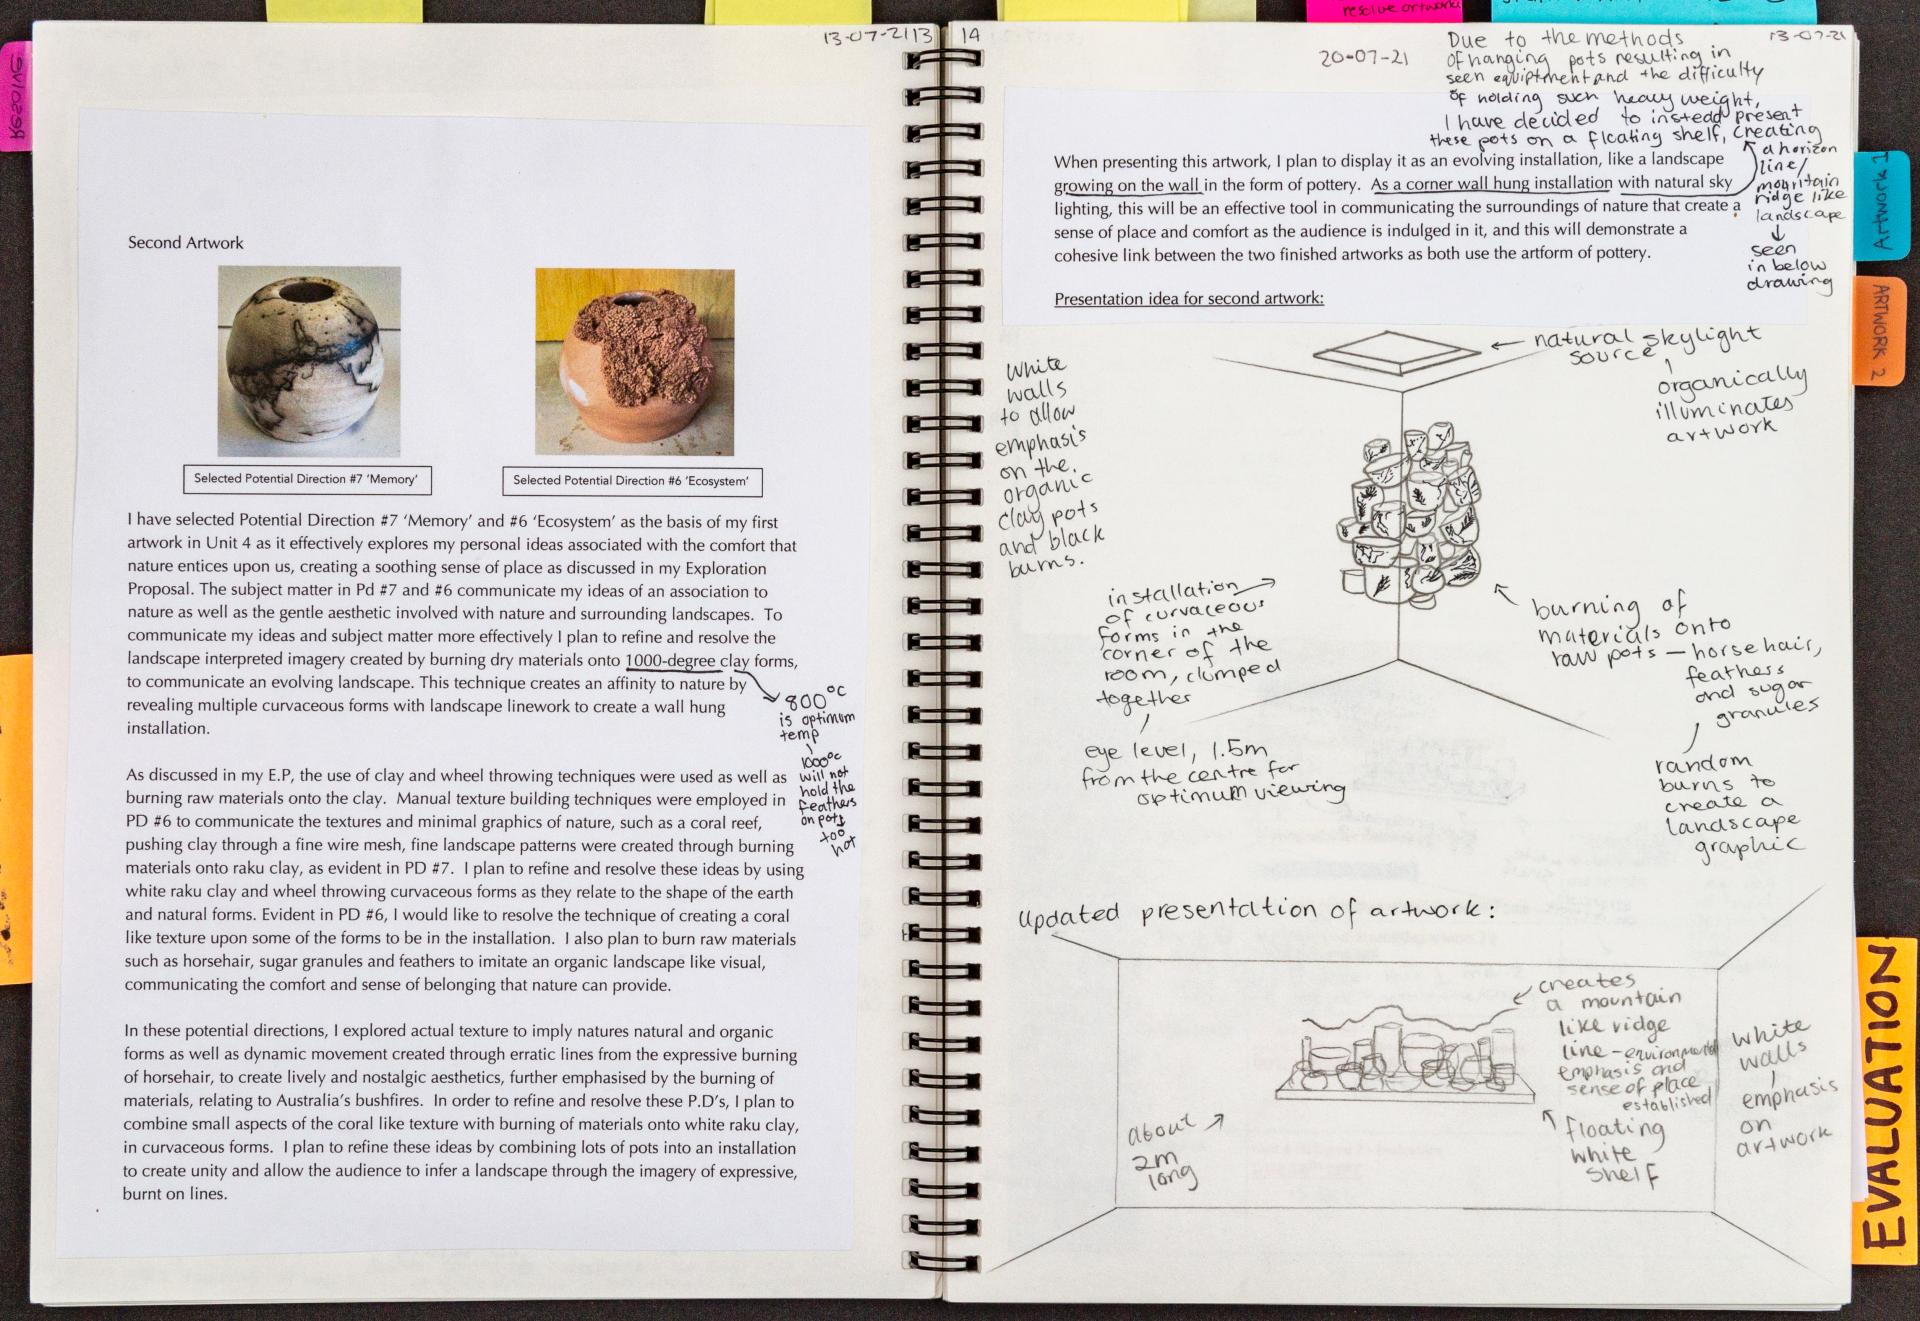 resolve artwork
Resolve
13-07-21 13
Second Artwork
Selected Potential Direction #7 ‘Memory’
Selected Potential Direction #6 ‘Ecosystem’
I have selected Potential Direction #7 ‘Memory’ and #6 ‘Ecosystem’ as the basis of my first
artwork in Unit 4 as it effectively explores my personal ideas associated with the comfort that
nature entices upon us, creating a soothing sense of place as discussed in my Exploration
Proposal. The subject matter in Pd #7 and #6 communicate my ideas of an association to
nature as well as the gentle aesthetic involved with nature and surrounding landscapes. To
communicate my ideas and subject matter more effectively I plan to refine and resolve the
landscape interpreted imagery created by burning dry materials onto 1000-degree clay forms,
to communicate an evolving landscape. This technique creates an affinity to nature by
revealing multiple curvaceous forms with landscape linework to create a wall hung
installation.
800°C
is optimum
temp
1000°C
will not
hold the
feathers
on pots
too
hot
As discussed in my E.P, the use of clay and wheel throwing techniques were used as well as
burning raw materials onto the clay. Manual texture building techniques were employed in
PD #6 to communicate the textures and minimal graphics of nature, such as a coral reef,
pushing clay through a fine wire mesh, fine landscape patterns were created through burning
materials onto raku clay, as evident in PD #7. I plan to refine and resolve these ideas by using
white raku clay and wheel throwing curvaceous forms as they relate to the shape of the earth
and natural forms. Evident in PD #6, I would like to resolve the technique of creating a coral
like texture upon some of the forms to be in the installation. I also plan to burn raw materials
such as horsehair, sugar granules and feathers to imitate an organic landscape like visual,
communicating the comfort and sense of belonging that nature can provide.
In these potential directions, I explored actual texture to imply natures natural and organic
forms as well as dynamic movement created through erratic lines from the expressive burning
of horsehair, to create lively and nostalgic aesthetics, further emphasised by the burning of
materials, relating to Australia’s bushfires. In order to refine and resolve these P.D’s, I plan to
combine small aspects of the coral like texture with burning of materials onto white raku clay,
in curvaceous forms. I plan to refine these ideas by combining lots of pots into an installation
to create unity and allow the audience to infer a landscape through the imagery of expressive,
burnt on lines.
14
13-07-21
20-07-21
Due to the methods
of hanging pots resulting in
seen equiptment and the difficulty
of holding such heavy weight,
I have decided to instead present
these pots on a floating shelf, creating
a horizon
line/
mountain
ridge like
landscape
seen
in below
drawing
When presenting this artwork, I plan to display it as an evolving installation, like a landscape
growing on the wall in the form of pottery. As a corner wall hung installation with natural sky
lighting, this will be an effective tool in communicating the surroundings of nature that create a
sense of place and comfort as the audience is indulged in it, and this will demonstrate a
cohesive link between the two finished artworks as both use the artform of pottery.
Presentation idea for second artwork:
natural skylight
source
organically
illuminates
artwork
White
walls
to allow
emphasis
on the
organic
clay pots
and black
burns.
installation
of curvaceous
forms in the
corner of the
room, clumped
together
eye level, 1.5m
from the centre for
optimum viewing
burning of
materials onto
raw pots — horsehair,
feathers
and sugar
granules
random
burns to
create a
landscape
graphic
Updated presentation of artwork:
creates
a mountain
like ridge
line - environmental
emphasis and
sense of place
established
white
walls
emphasis
on
artwork
about
2m
long
floating
white
shelf
Artwork 1
ARTWORK 2
EVALUATION